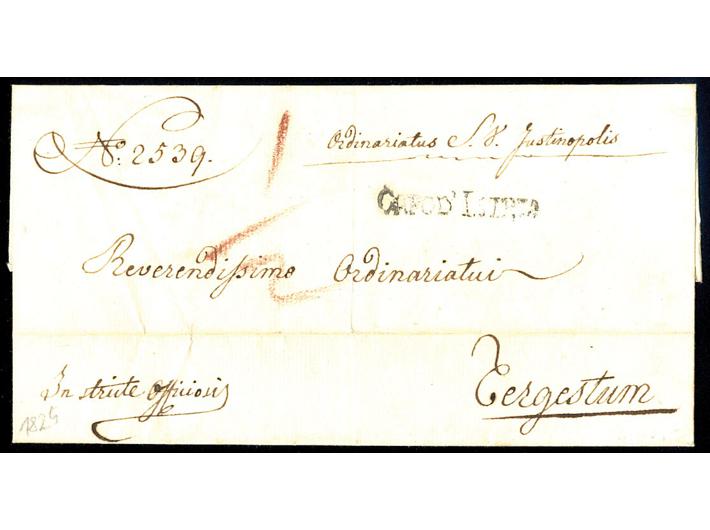 No: 2539.
Ordinariatus S. V. Justinopolis
CAPOD'ISTRIA
Reverendissimo Ordinariatui
In stricte Officiosis
Tergestum
1825